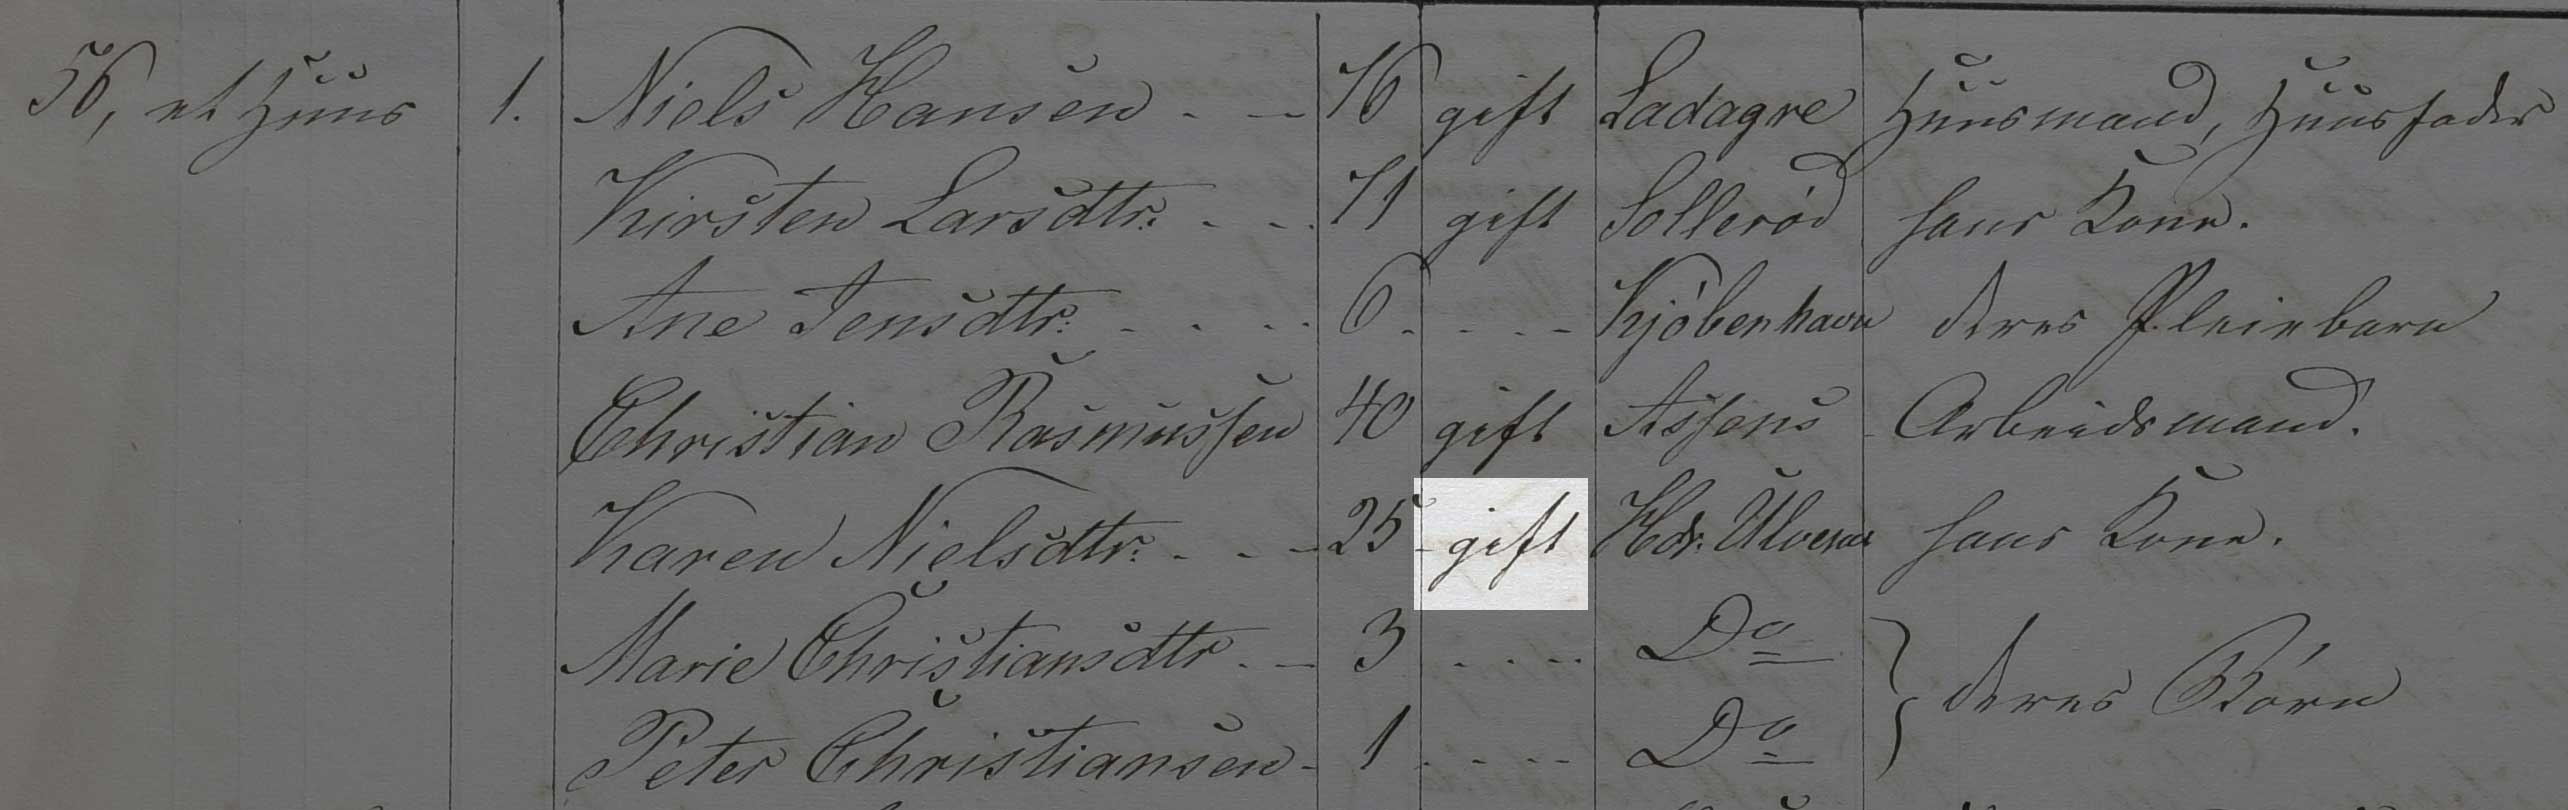 56, et Huus 1. Niels Hansen - - 76 gift Ladagre Huusmand, Huusfader
Kirsten Larsdtr. - - 71 gift Sollerød hans Kone.
Ane Jensdtr. - - - - 6 - - - - Kjøbenhavn deres Pleiebarn
Christian Rasmussen 40 gift Assens Arbeidsmand.
Karen Nielsdtr. - - - 25 - gift hans Kone.
Marie Christiansdtr - - 3 - - - - Do } deres Børn
Peter Christiansen - 1 - - - - Do